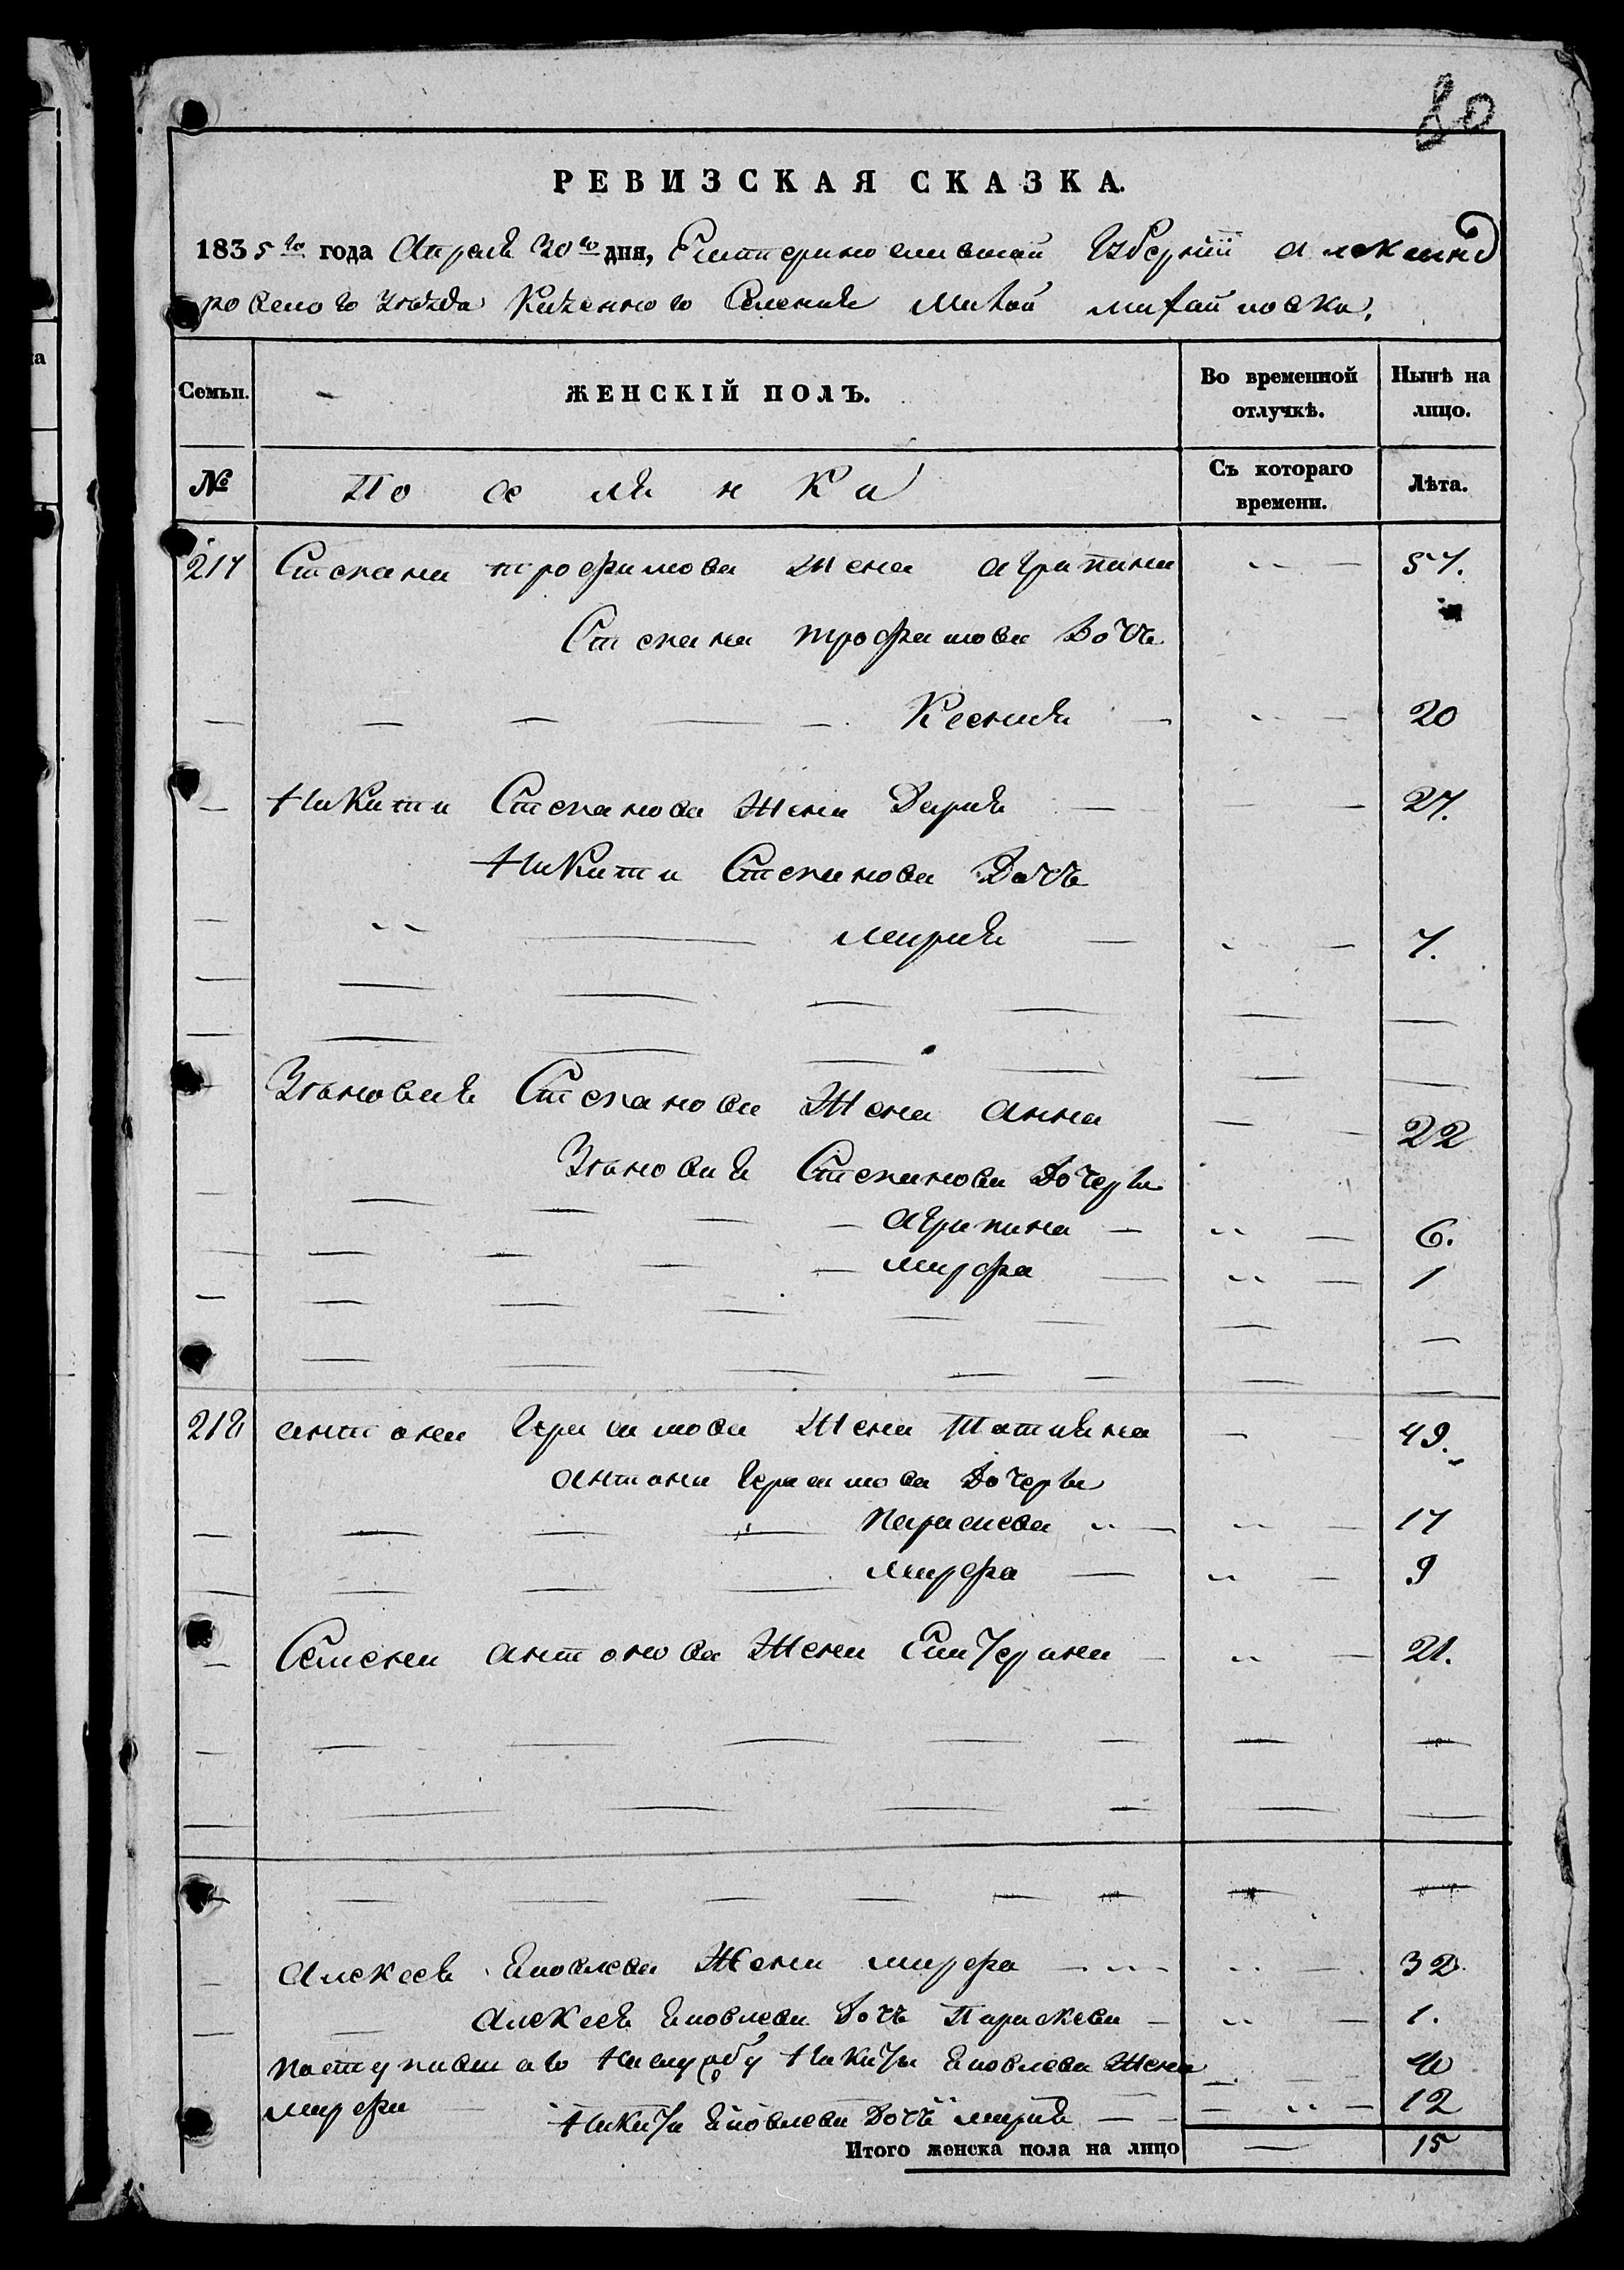 80
РЕВИЗСКАЯ СКАЗКА.
1835го года Апреля 30го дня, Екатеринославской Губернии Александ
ровского уезда Казенного Селения Малой михайловки,
Семьи. ЖЕНСКІЙ ПОЛЪ. Во временной отлучкѣ. Нынѣ на лицо.
№ Поселянка Съ котораго времени. Лѣта.
217 Степана трофимова Жена агрипина 57.
Степана трофимова Дочь
Ксения 20
Никиты Степанова Жена Дария 27.
Никиты Степанова Дочь
мария 7.
Зѣновия Степанова Жена анна 22
Зѣновия Степанова Дочери
агрипина 6.
марфа 1
218 антона Герасимова Жена Татияна 49.
антона Герасимова Дочери
параскева 17
марфа 9
Семена антонова Жена Екатерина 21.
Алексея Яковлева Жена марфа 32.
Алексея Яковлева Дочь Параскева 1.
поступившаго на службу Никиты Яковлева Жена
марфа
Никиты Яковлева Дочь мария 12
Итого женска пола на лицо 15